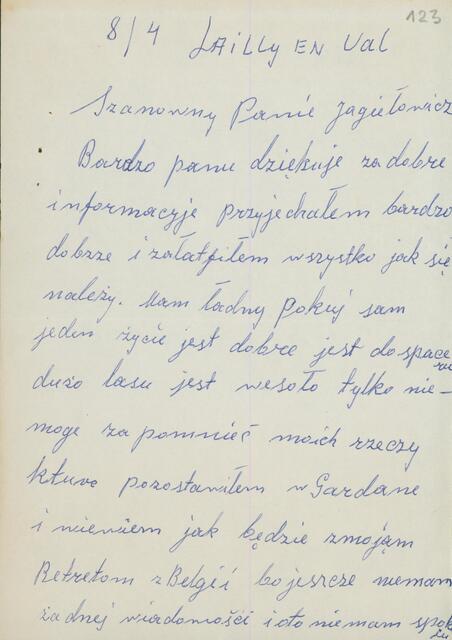 123
8/4 LAiLLy EN Val
Szanowny Panie Jagiełowicz
Bardzo panu dziękuje za dobre
informacyje przyjechałem bardzo
dobrze i załatfiłem wszystko jak się
należy. Mam ładny pokuj sam
jeden życie jest dobre jest do space
ru
dużo lasu jest wesoło tylko nie-
moge zapomnieć moich rzeczy
kture pozostawiłem w Gardane
i niewiem jak będzie zmojąm
Retretom z Belgii bo jeszcze niemam
żadnej wiadomośći i oto niemam spok